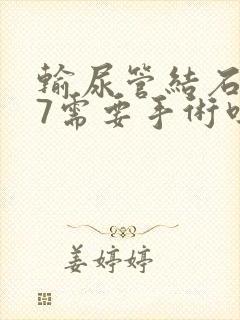 輸尿管結石
7需要手術
姜婷婷